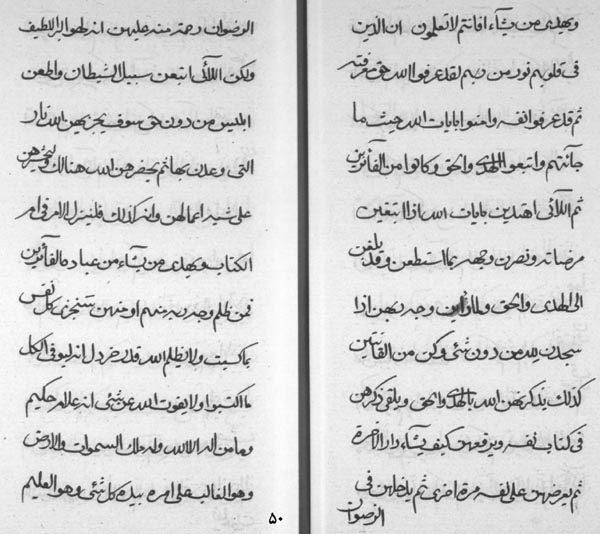 ويهدى من يشآء افانتم لا تعلمون ان الذين
فى قلوبهم نور من ربهم لقد عرفوا الله حق معرفته
ثم قد عرفوا نفسه وامنوا بايات الله حيث ما
جآئتهم واتبعوا الهدى والحق وكانوا من الفآئزين
ثم اللآئى اهتدين بايات الله اذا ابتغين
مرضاته ونصرن وجهه بما استطعن وقد بلغن
الى الهدى والحق ولما وجد ربهن اذا
سجدن لله من دون شئ وكن من القانتين
كذلك يذكرهن الله بالهدى والحق ويلقى ذكرهن
فى كتاب نفسه ويرفعهن كيف يشآء دار الاخرة
ثم يعرضهن على نفسه مرة اخرى ثم يدخلهن فى
الرضوان
الرضوان رحمة منه عليهن انه لهو البر اللطيف
ولكن اللآئى اتبعن سبيل الشيطان واطعن
ابليس من دون حق سوف يجزيهن الله نار
التى وعدن بها ثم يحضرهن الله هنالك
على شر اعمالهن وانه كذلك فلينزل الامر فى ام
الكتاب ويهدى من يشآء من عباده الفآئزين
فمن ظلم وجه ربه منهم او منهن ستجزى كل نفس
بما كسبت ولا يظلم الله قدر خردل انه ليوفى الكل
ما اكتسبوا ولا يفوت الله عن شئ انه علام حكيم
وما من اله الا الله وله ملك السموات والارض
وهو الغالب على امره بيده كل شئ وهو العليم
۵۰